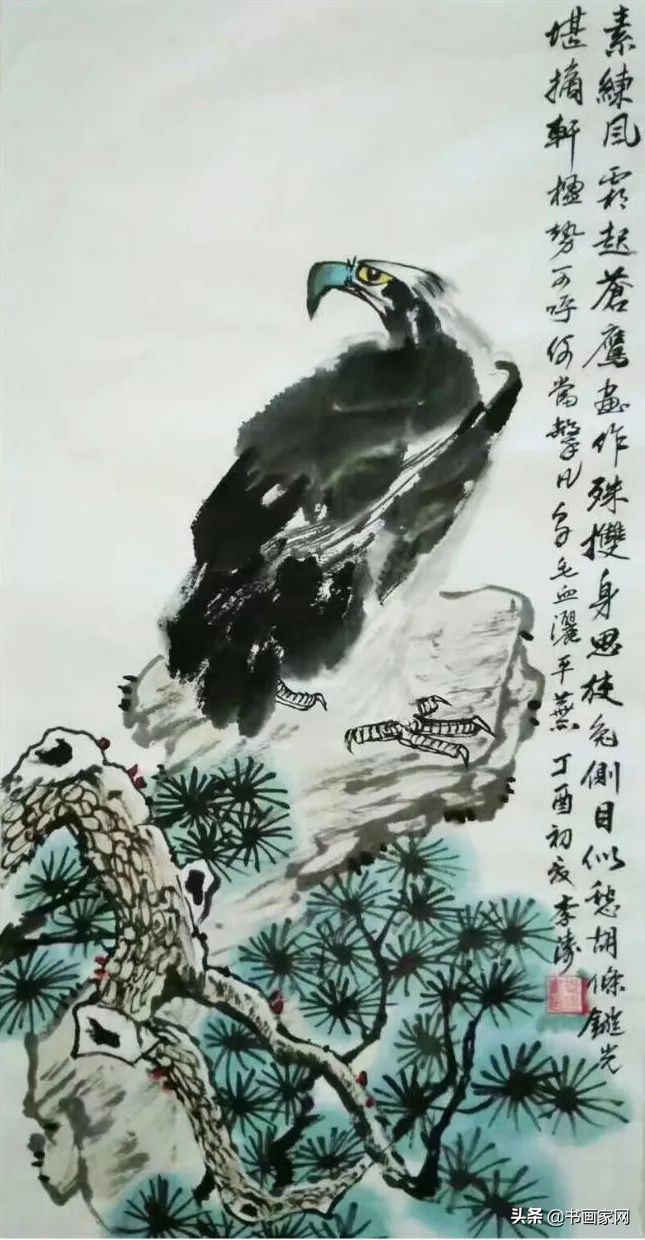 素練風霜起蒼鷹畫作殊㩳身思狡兔側目似愁胡絛鏇光
堪摘軒楹勢可呼何當擊凡鳥毛血灑平蕪 丁酉初夏李濤
头条 @书画家网